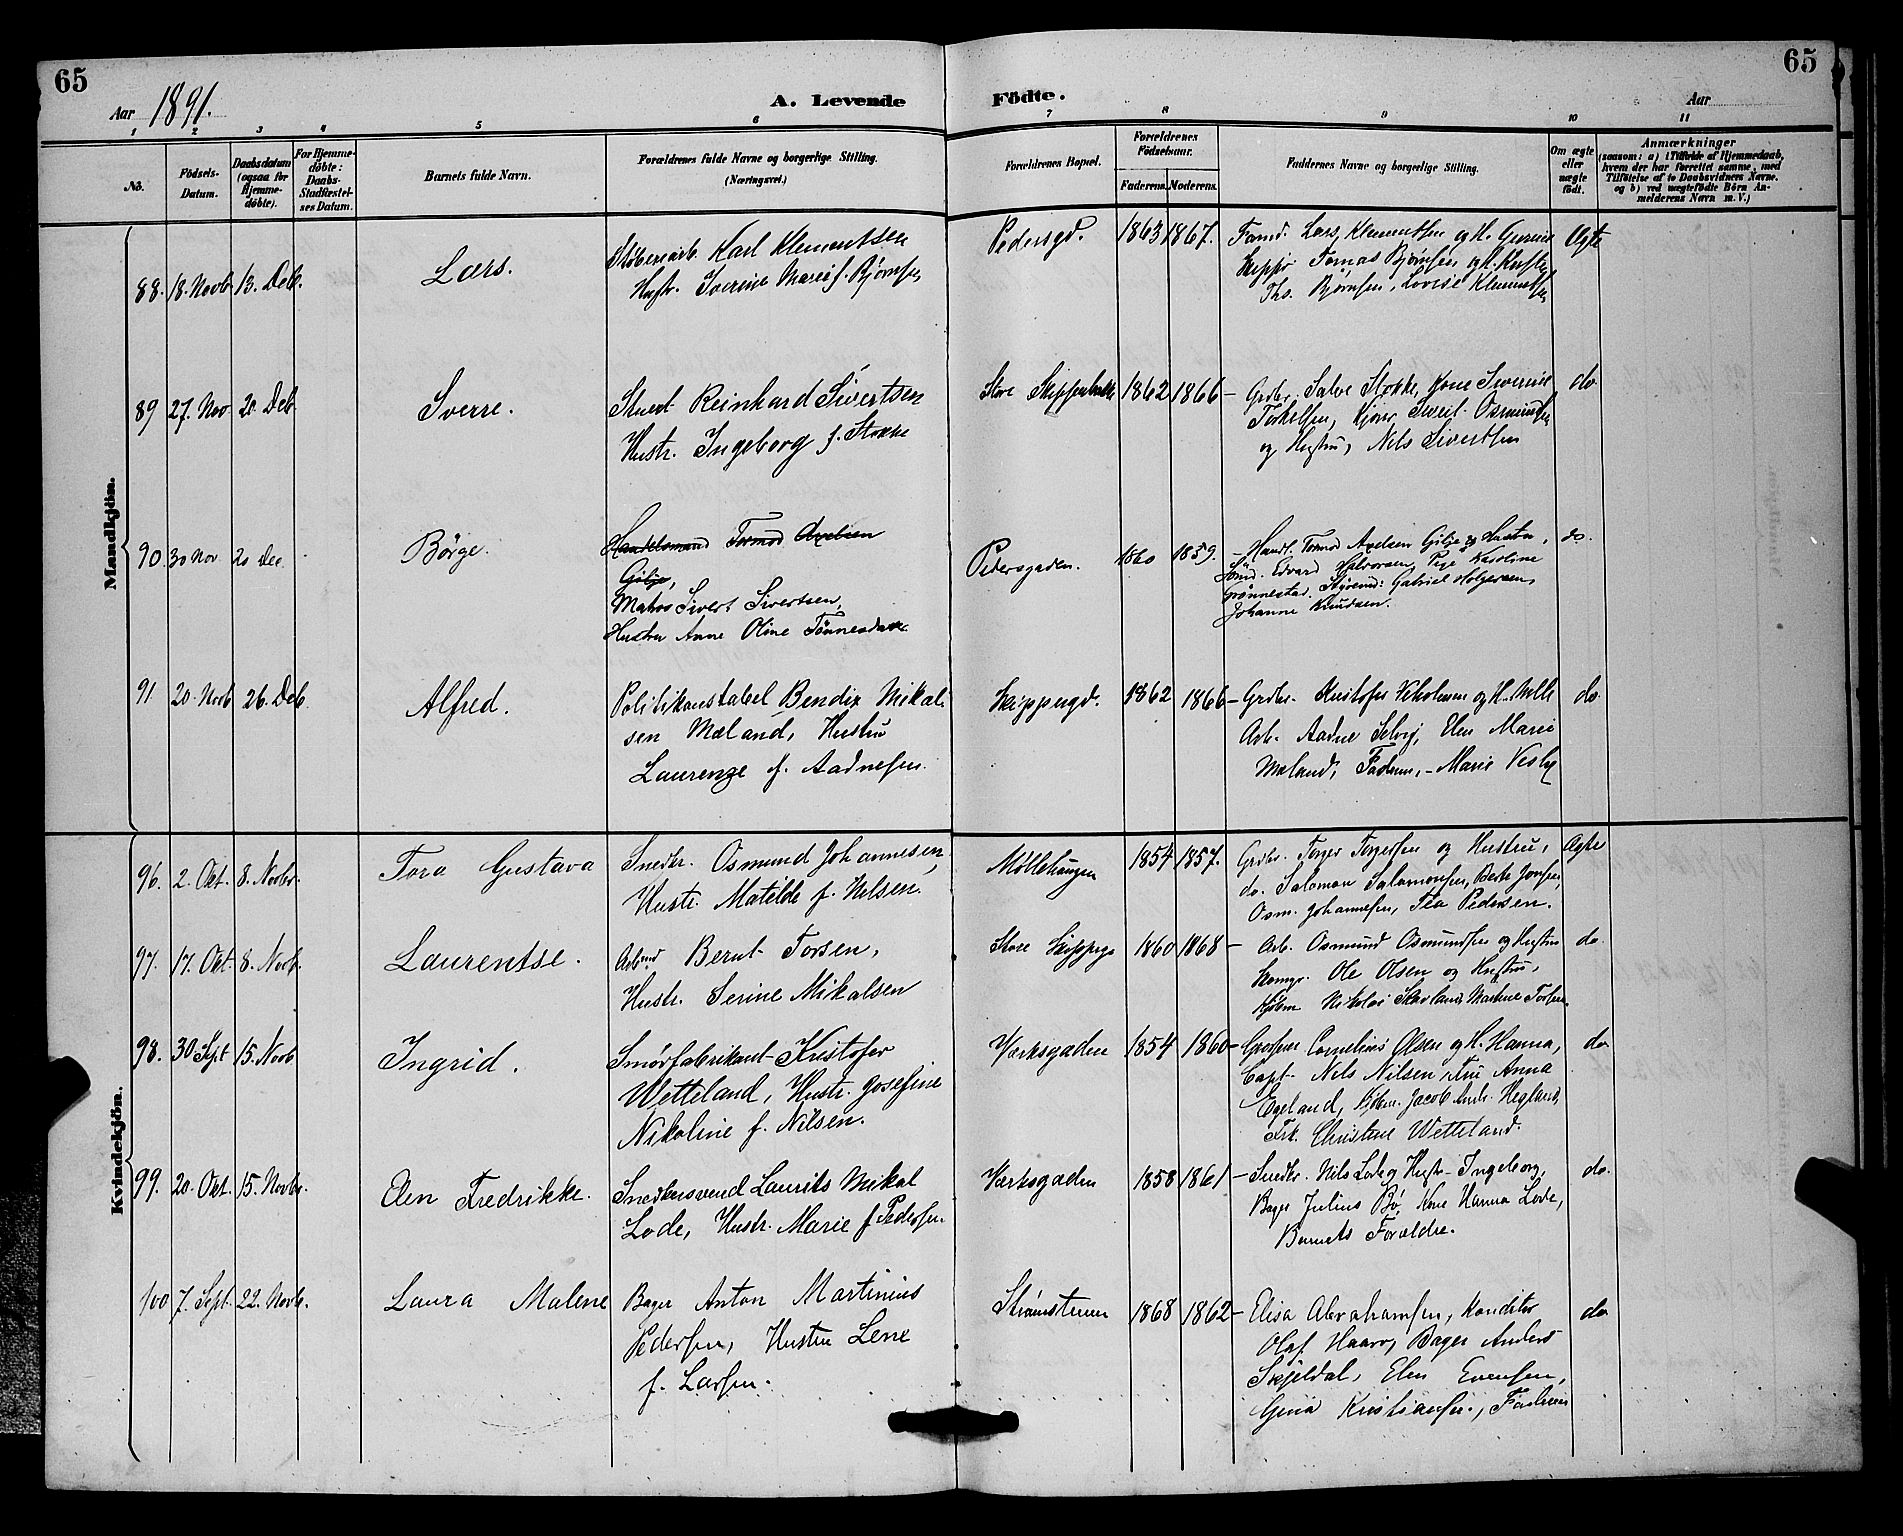 65
65
Aar 1891.
A. Levende
Födte.
Aar
1 2 3 4 5 6 7 8 9 10 11
No.
Födsels-
Datum.
Daabsdatum
(ogsaa for
Hjemme-
döbte).
For Hjemme-
döbte:
Daabs-
Stadfæstel-
ses Datum.
Barnets fulde Navn.
Forældrenes fulde Navne og borgerlige Stilling.
(Næringsvei.)
Forældrenes Bopæl.
Forældrenes
Födselsaar.
Faderens. Moderens.
Faddernes Navne og borgerlige Stilling.
Om ægte
eller
uægte
födt.
Anmærkninger
(saasom: a) i Tilfælde af Hjemmedaab,
hvem der har forrettet samme, med
Tilföielse af to Daabsvidners Navne.
og b) ved uægtefödte Börn An-
melderens Navn m. V.)
Mandkjön.
88. 18. Novb. 13. Deb.
Lars.
Støberiarb. Karl Klementsen
Hustr. Severine Marie f. Bjørnsen
Pedersgd.
1863 1867.
Lars Klementsen og H. Gurine
Skippr. Tomas Bjørnsen og H.
Ths. Bjørnsen, Lovise Klementsen
Ægte
89 27. Nov 20. Deb
Sverre.
Stuert Reinhard Sivertsen
Hustr. Ingeborg f. Stokke
Store Skippenbakke
1862 1866
Grdbr. Salve Stokke, Kone Siverine
Torkelsen, Sivert Osmundsen
og Hustru, Nels Sivertsen
do
90. 30 Nov 20 Dec
Börge.
Handelsmand Tormod Axelsen
Gilje,
Matros Sivert Sivertsen,
Hustru Anne Oline Tönnesdatter
Pedersgaden.
1860 1859.
Handl. Tormod Axelsen Gilje og Hustru,
Sömd. Edvard Halvorsen, Pige Karoline
Grönnestad. Styrmd: Gabriel Holgersen,
Johanne Knudsen.
do.
91 20. Novb 26. Deb.
Alfred.
Politikonstabel Bendix Mikal-
sen Mæland, Hustru
Laurenze f. Aadnesen.
Skippergd.
1862 1866
Grdbr. Kristofer og H.
Arb. Aadne Selvig, Elen Marie
Mæland, Faderen, Marie Vesby
do
Kvindekjön.
96. 2. Okt. 8. Novbr.
Tora Gustava
Snedkr. Osmund Johannesen,
Hustr. Matilde f. Nilsen.
Møllehaugen
1854 1857.
Grdbr. Torger Torgersen og Hustru,
do. Salomon Salomonsen, Berte Jonsen,
Osm. Johannesen, Tea Pedersen.
Ægte
97. 17. Okt. 8. Novb.
Laurentse.
Arbmd Bernt Torsen,
Hustr. Serine Mikalsen
Store Skippergd
1860 1868
Arb. Osmund Osmundsen og Hustru
Ole Olsen og Hustru,
Nikolai Skavland, Martine Torsen.
do.
98. 30 Sept 15. Novb
Ingrid.
Smørfabrikant Kristofer
Wetteland, Hustr. Josefine
Nikoline f. Nilsen.
Værksgaden
1854 1860
Grosserer Cornelius Olsen og H. Hanna,
Capt. Nils Nilsen, Fru Anna
Egeland, Kjøbm. Jacob Andr. Hegland,
Frk. Christine Wetteland.
do
99. 20. Okt. 15. Novbr.
Elen Fredrikke.
Snedkersvend Laurits Mikal
Lode, Hustr. Marie f. Pedersen
Værksgaden
1858 1861
Snedkr. Nils Lode og Hustr. Ingeborg,
Bager Julius Bø, Kone Hanna Lode,
Barnets Forældre.
do.
100 7. Sept. 22. Novb.
Laura Malene
Bager Anton Martinius
Pedersen, Hustru Lene
f. Larsen.
Strømstenen
1868 1862
Elisa Abrahamsen, Konditor
Olaf Haavr, Bager Anders
Skjeldal, Elen Evensen,
Gina Kristiansen, Faderen
do